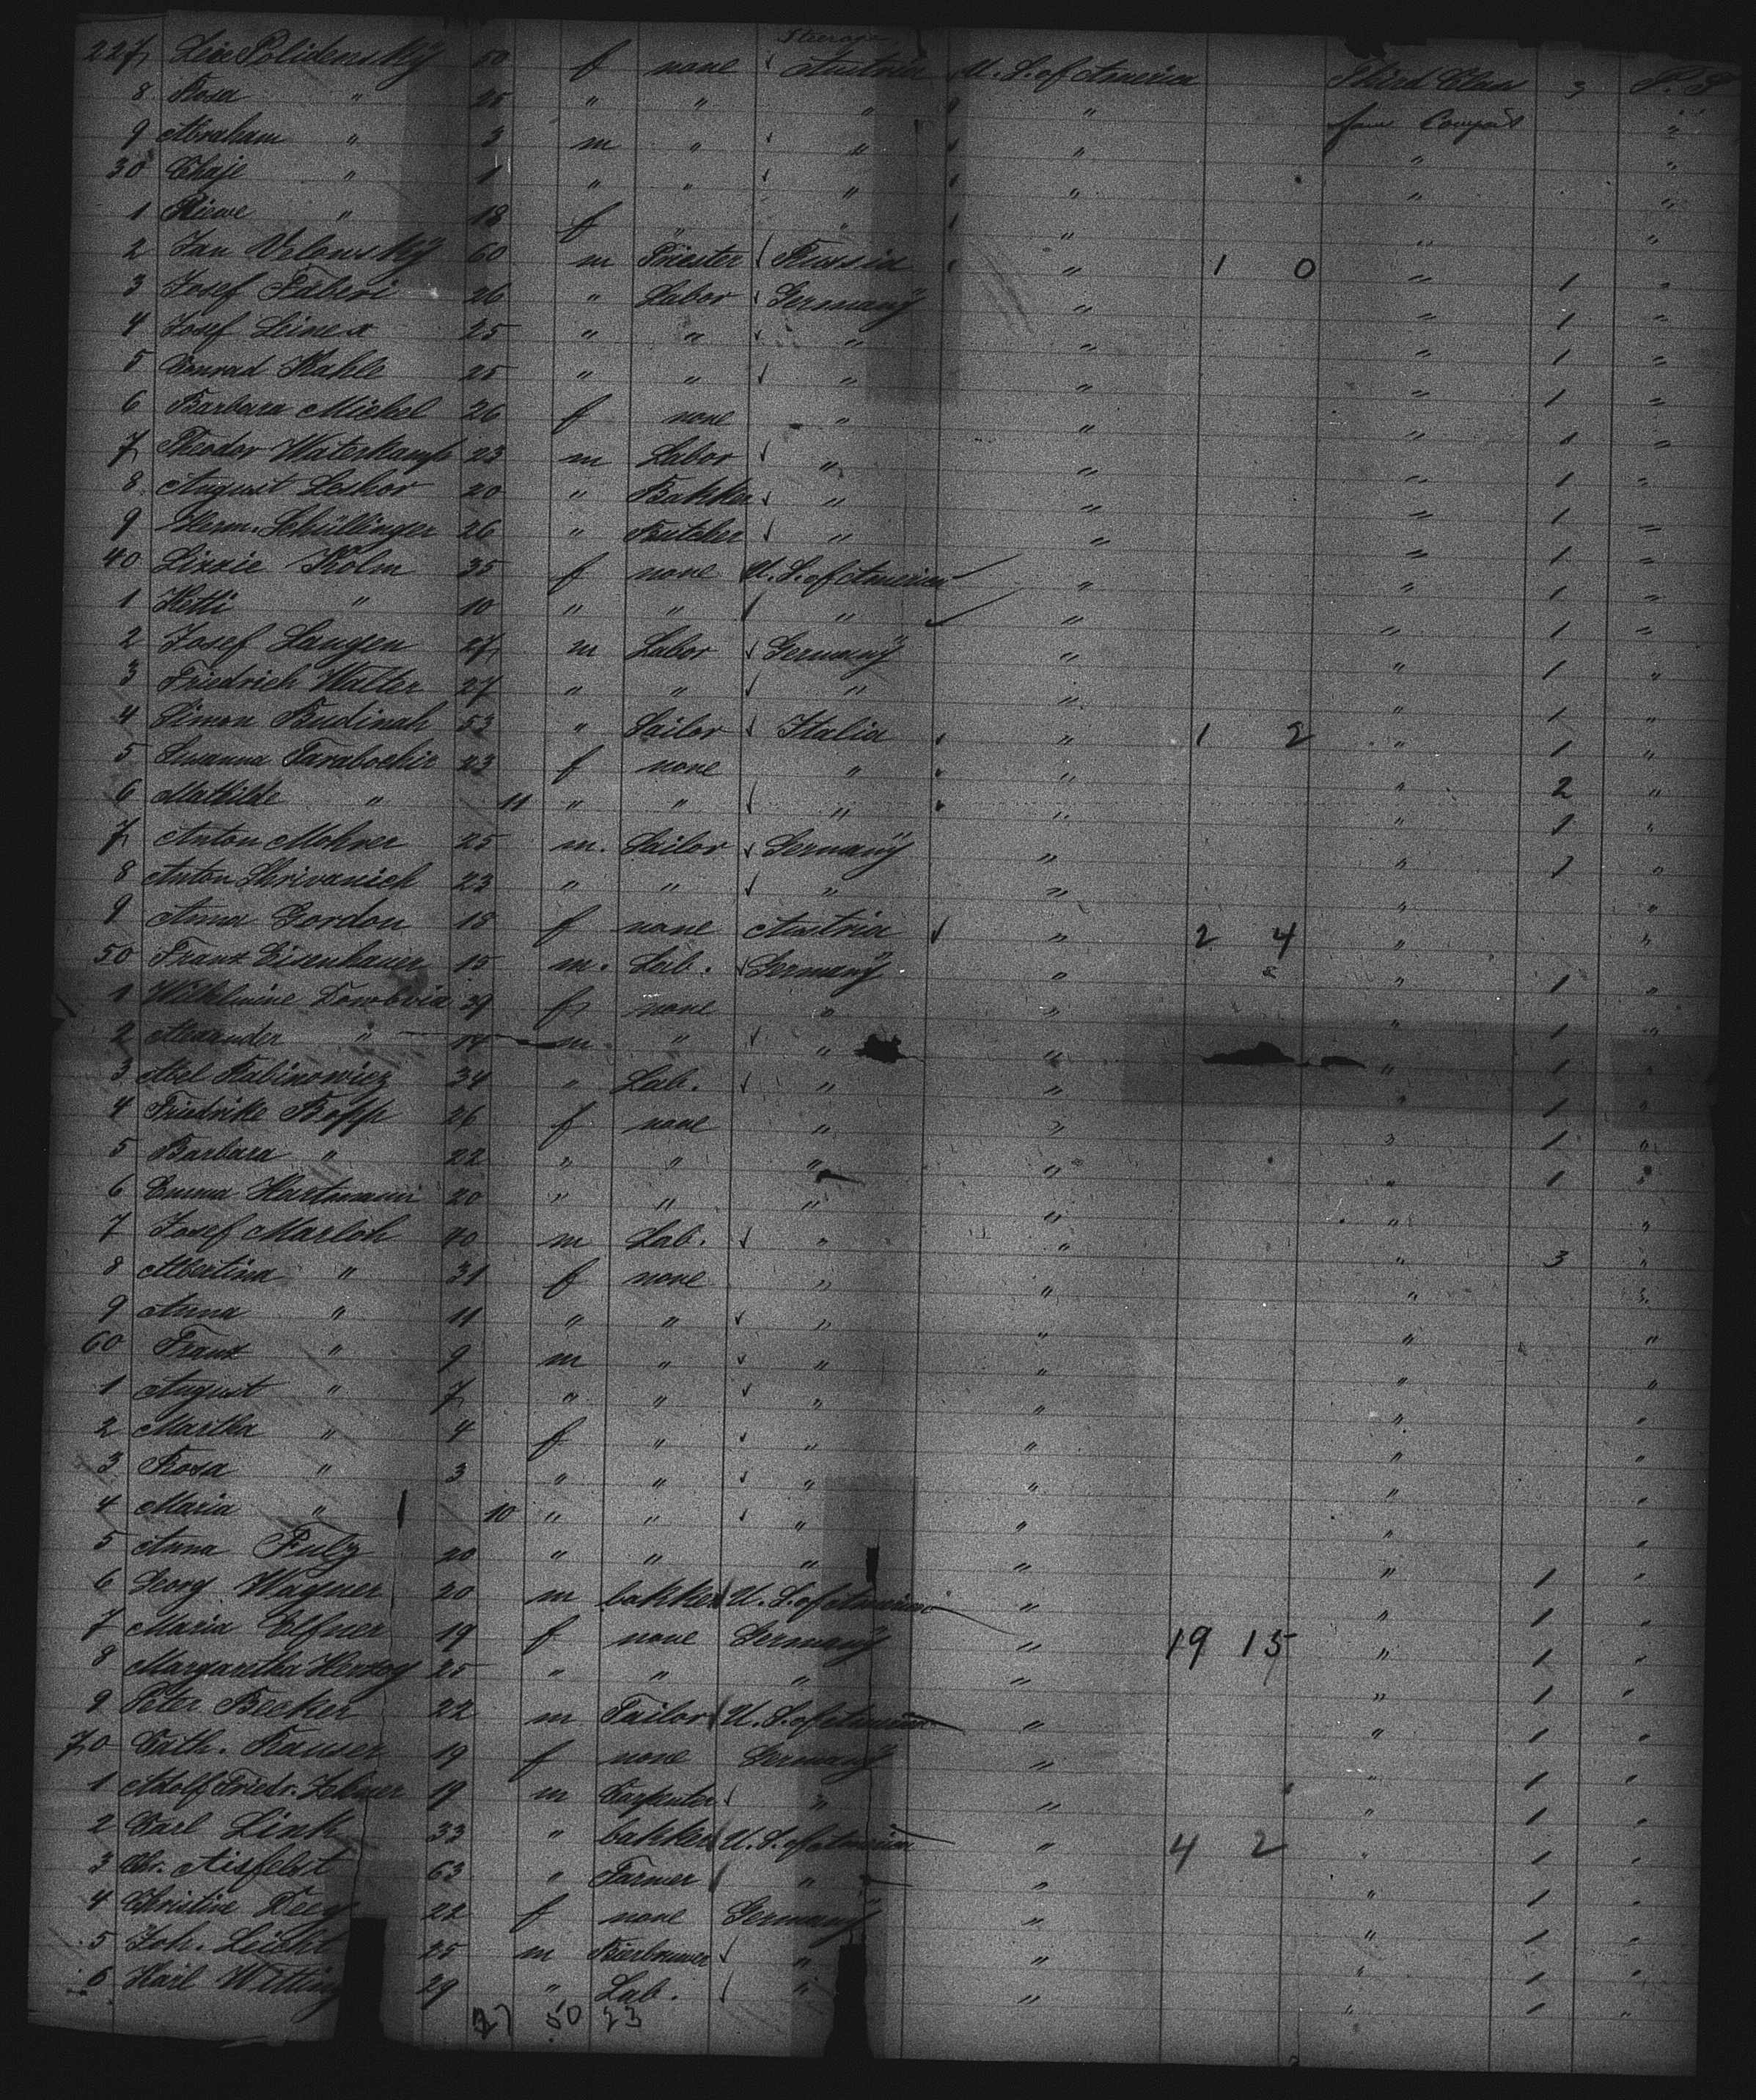 Steerage
227 Polidensky 50 f none Austria U. S. of America Third Class 3
8 Rosa " 25 " " " "
9 Abraham " 3 m " " " "
30 Chaje " 1 " " " " "
1 Riewe " 18 f " " " "
2 Jan Velensky 60 m Priester Russia " 1 0 " 1 "
3 Josef Faberi 26 " Labor Germany " " 1 "
4 Josef 25 " " " " " 1 "
5 Conrad Kahle 25 " " " " " 1 "
6 Barbara Michel 26 f none " " " 1 "
7 Theodor Waterkamp 23 m Labor " " " 1 "
8 August 20 " Bakker " " " 1 "
9 Herm. Schüllinger 26 " Butcher " " " 1 "
40 Lizzie Kolm 35 f none U. S. of America " " 1 "
1 Hetti " 10 " " " " " 1 "
2 Josef Langen 27 m Labor Germany " " 1 "
3 Friedrich Walter 27 " " " " " 1 "
4 Simon Budinah 53 " Sailor Italia " 1 2 " 1 "
5 Susanna Tarabochie 23 f none " " " 2 "
6 Mathilde " 11 " " " " " 1 "
7 Anton Mohrer 25 m. Sailor Germany " " 1 "
8 Anton Skrivanich 23 " " " " " "
9 Anna Gordon 18 f none Austria " 2 4 " "
50 Franz Eisenhauer 15 m. Lab. Germany " " 1 "
1 Wilhelmine 39 f none " " " 1 "
2 Alexander " 14 m " " " " 1 "
3 Abel Rabinowicz 34 " Lab. " " " 1 "
4 Friedrike Bopp 26 f none " " " 1 "
5 Barbara " 22 " " " " " 1 "
6 Emma Hartmann 20 " " " " " "
7 Josef Marloh 40 m Lab. " " " 3 "
8 Albertina " 31 f none " " " "
9 Anna " 11 " " " " " "
60 Franz " 9 m " " " " "
1 August " 7 " " " " " "
2 Martha " 4 f " " " " "
3 Rosa " 3 " " " " " "
4 Maria " 10 " " " " " "
5 Anna Fulz 20 " " " " " 1 "
6 Georg Wagner 20 m bakker U. S. of America " " 1 "
7 Maria Elfner 19 f none Germany " 19 15 " 1 "
8 Margaretha Herzog 25 " " " " " 1 "
9 Peter Becker 22 m Tailor U. S. of America " " 1 "
70 Cath. Kauser 19 f none Germany " " 1 "
1 Adolf Friedr. 19 m Carpenter " " " 1 "
2 Carl Link 33 " bakker U. S. of America " 4 2 " 1 "
3 Chr. Aisfelst 63 " Farmer " " " 1 "
4 Christine Deeg 22 f none Germany " " 1 "
5 Joh. 25 m Bierbrauer " " " 1 "
6 Karl Witting 29 " Lab. " " " 1 "
27 50 23